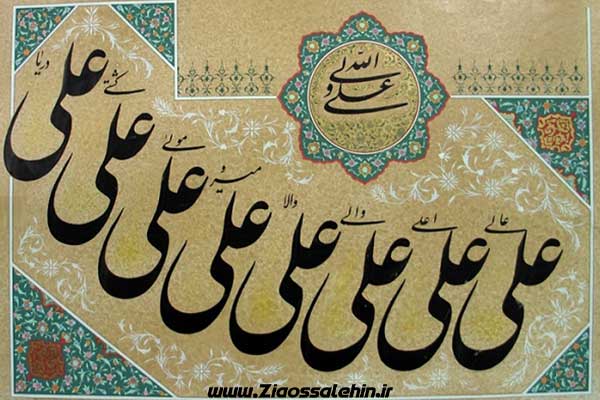 علی ولی الله
علی عالی علی اعلی علی والی علی والا علی میر و علی مولی علی کشتی علی دریا
www.Ziaossalehin.ir